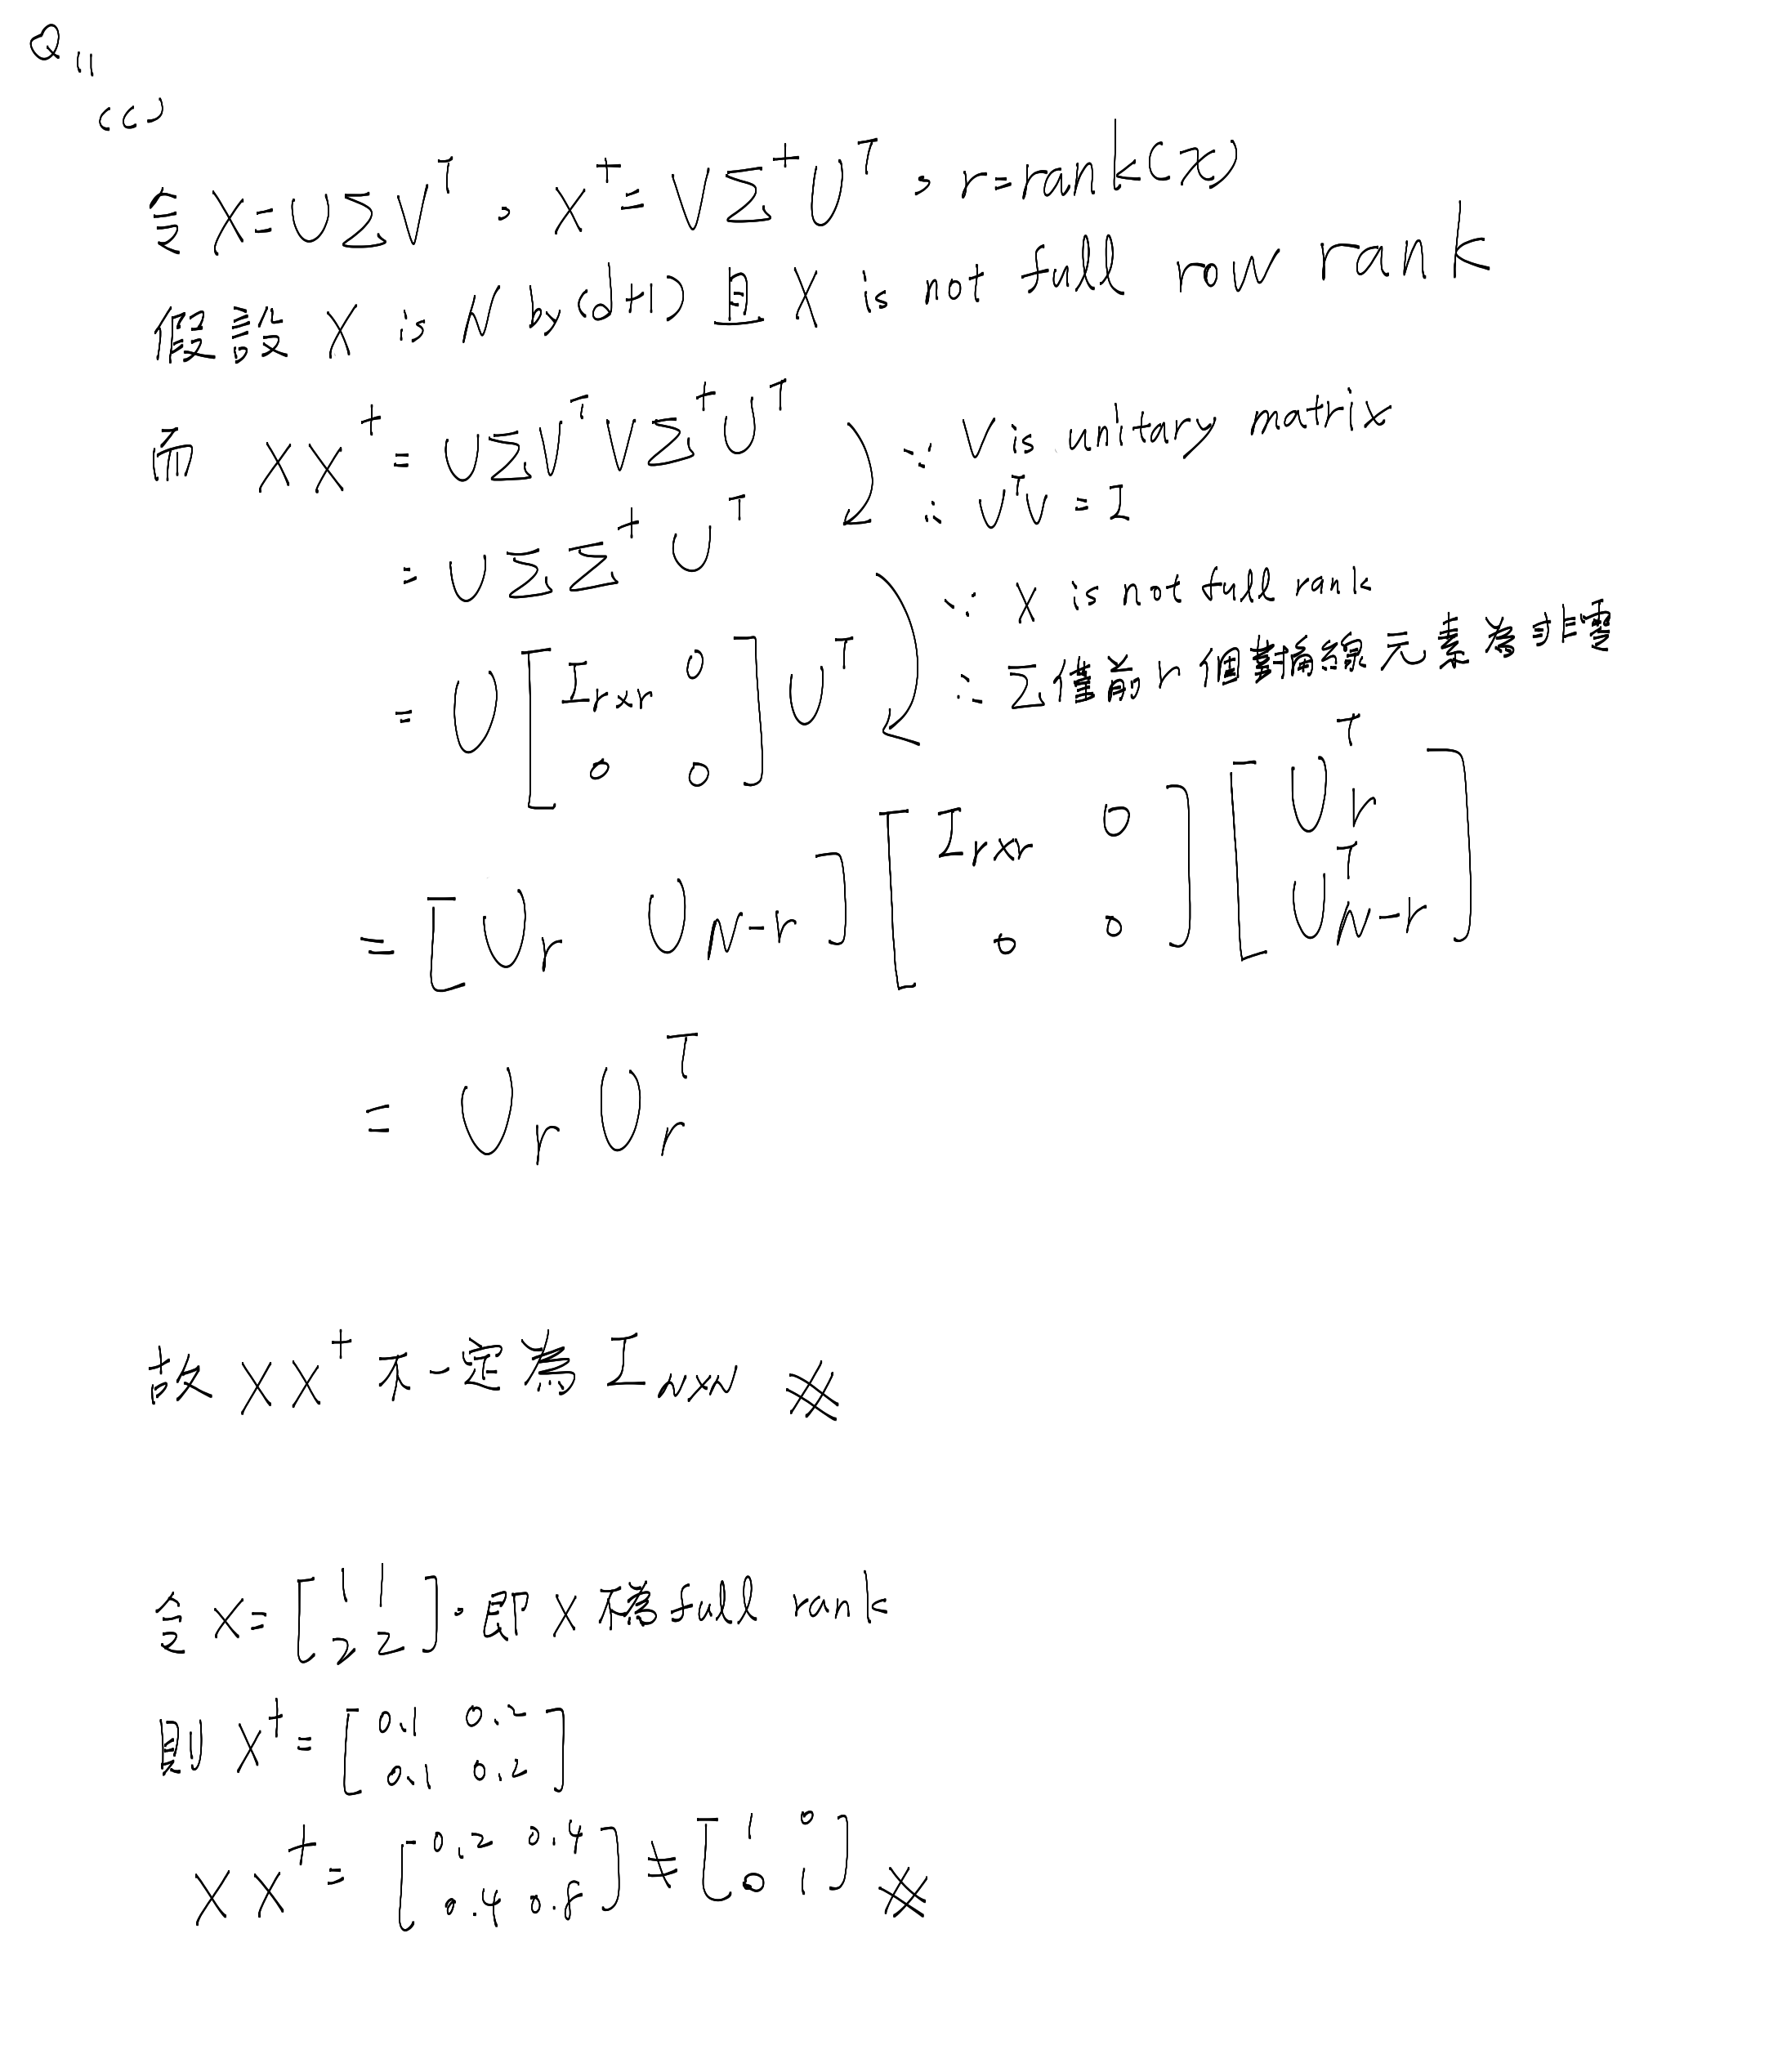 Q11
(c)
令 X=UΣVᵀ。X⁺=VΣ⁺Uᵀ,r=rank(X)
假設 X is N by (d+1) 且 X is not full row rank
而 XX⁺ = UΣVᵀVΣ⁺Uᵀ ∵ V is unitary matrix
∴ VᵀV = I
= UΣΣ⁺Uᵀ
∵ X is not full rank
= U [ I_{r×r} 0 ; 0 0 ] Uᵀ ∴ Σ僅前r個對角線元素為非零
= [ U_r U_{N-r} ] [ I_{r×r} 0 ; 0 0 ] [ U_rᵀ ; U_{N-r}ᵀ ]
= U_r U_rᵀ
故 XX⁺ 不一定為 I_{N×N} ※
令 X= [ 1 1 ; 2 2 ]。即 X 不為 full rank
則 X⁺= [ 0.1 0.2 ; 0.1 0.2 ]
XX⁺= [ 0.2 0.4 ; 0.4 0.8 ] ≠ [ 1 0 ; 0 1 ] ※